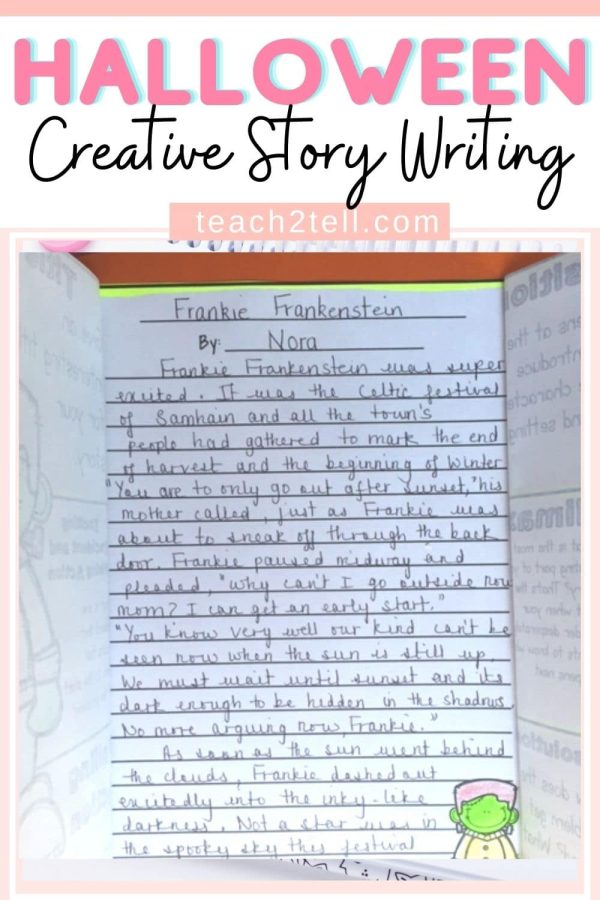 HALLOWEEN
Creative Story Writing
teach2tell.com
Frankie Frankenstein
By: Nora
Frankie Frankenstein was super
excited. It was the Celtic festival
of Samhain and all the town's
people had gathered to mark the end
of harvest and the beginning of Winter
"You are to only go out after sunset," his
mother called, just as Frankie was
about to sneak off through the back
door. Frankie paused midway and
pleaded, "why can't I go outside now
mom? I can get an early start."
"You know very well our kind can't be
seen now when the sun is still up.
We must wait until sunset and its
dark enough to be hidden in the shadows.
No more arguing now, Frankie."
As soon as the sun went behind
the clouds, Frankie dashed out
excitedly into the inky-like
darkness. Not a star was in
the spooky sky this festival